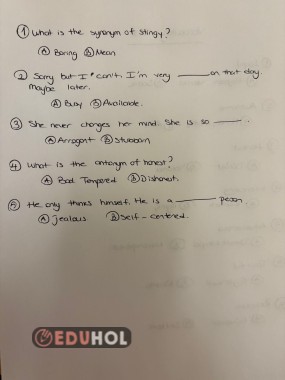 ① What is the synonym of stingy?
Ⓐ Boring Ⓑ Mean
② Sorry but I can't. I'm very ____ on that day.
Maybe later.
Ⓐ Busy Ⓑ Available.
③ She never changes her mind. She is so ____ .
Ⓐ Arrogant Ⓑ Stubborn
④ What is the antonym of honest?
Ⓐ Bad Tempered Ⓑ Dishonest.
⑤ He only thinks himself. He is a ____ person
Ⓐ jealous Ⓑ Self-centered.
EDUHOL